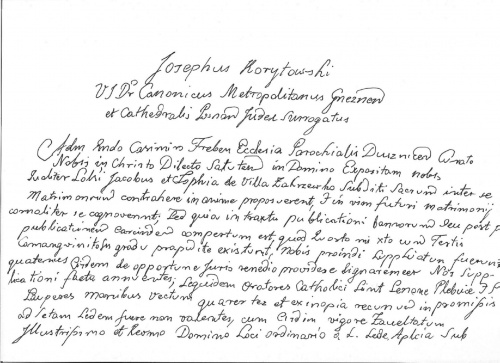 Josephus Korytowski
VJDr Canonicus Metropolitanus Gneznen
et Cathedralis Posnan Judex Surrogatus
Adm Rndo Casimiro Ecclesia Parochialis Curato
Nobis in Christo Dilecto Salutem in Domino Expositum nobis
Jacobus et Sophia de Villa Subditi Sacrum inter se
Matrimonium contrahere in animo proposuerint, in vim futuri matrimonij
carnaliter se cognoverint. Sed quia in tractu publicationi bannorum seu post p
publicationem earundem compertum est, quod Quarto mixto cum Tertio
Consanguinitatis gradu existunt, nobis proinde Supplicatum fuerunt
quatenus Eisdem de opportuno juris remedio providere dignaremur Nos Supp-
licationi facta annuentes, Siquidem Oratores Catholici Sint
Pauperes manibus victum et ex inopia recursum in promissis
ad Sedem valentes, cum Eisdem vigore Facultatum
Illustrissimo et Rermo Domino Loci ordinario a S. Sede Aplcia Sub